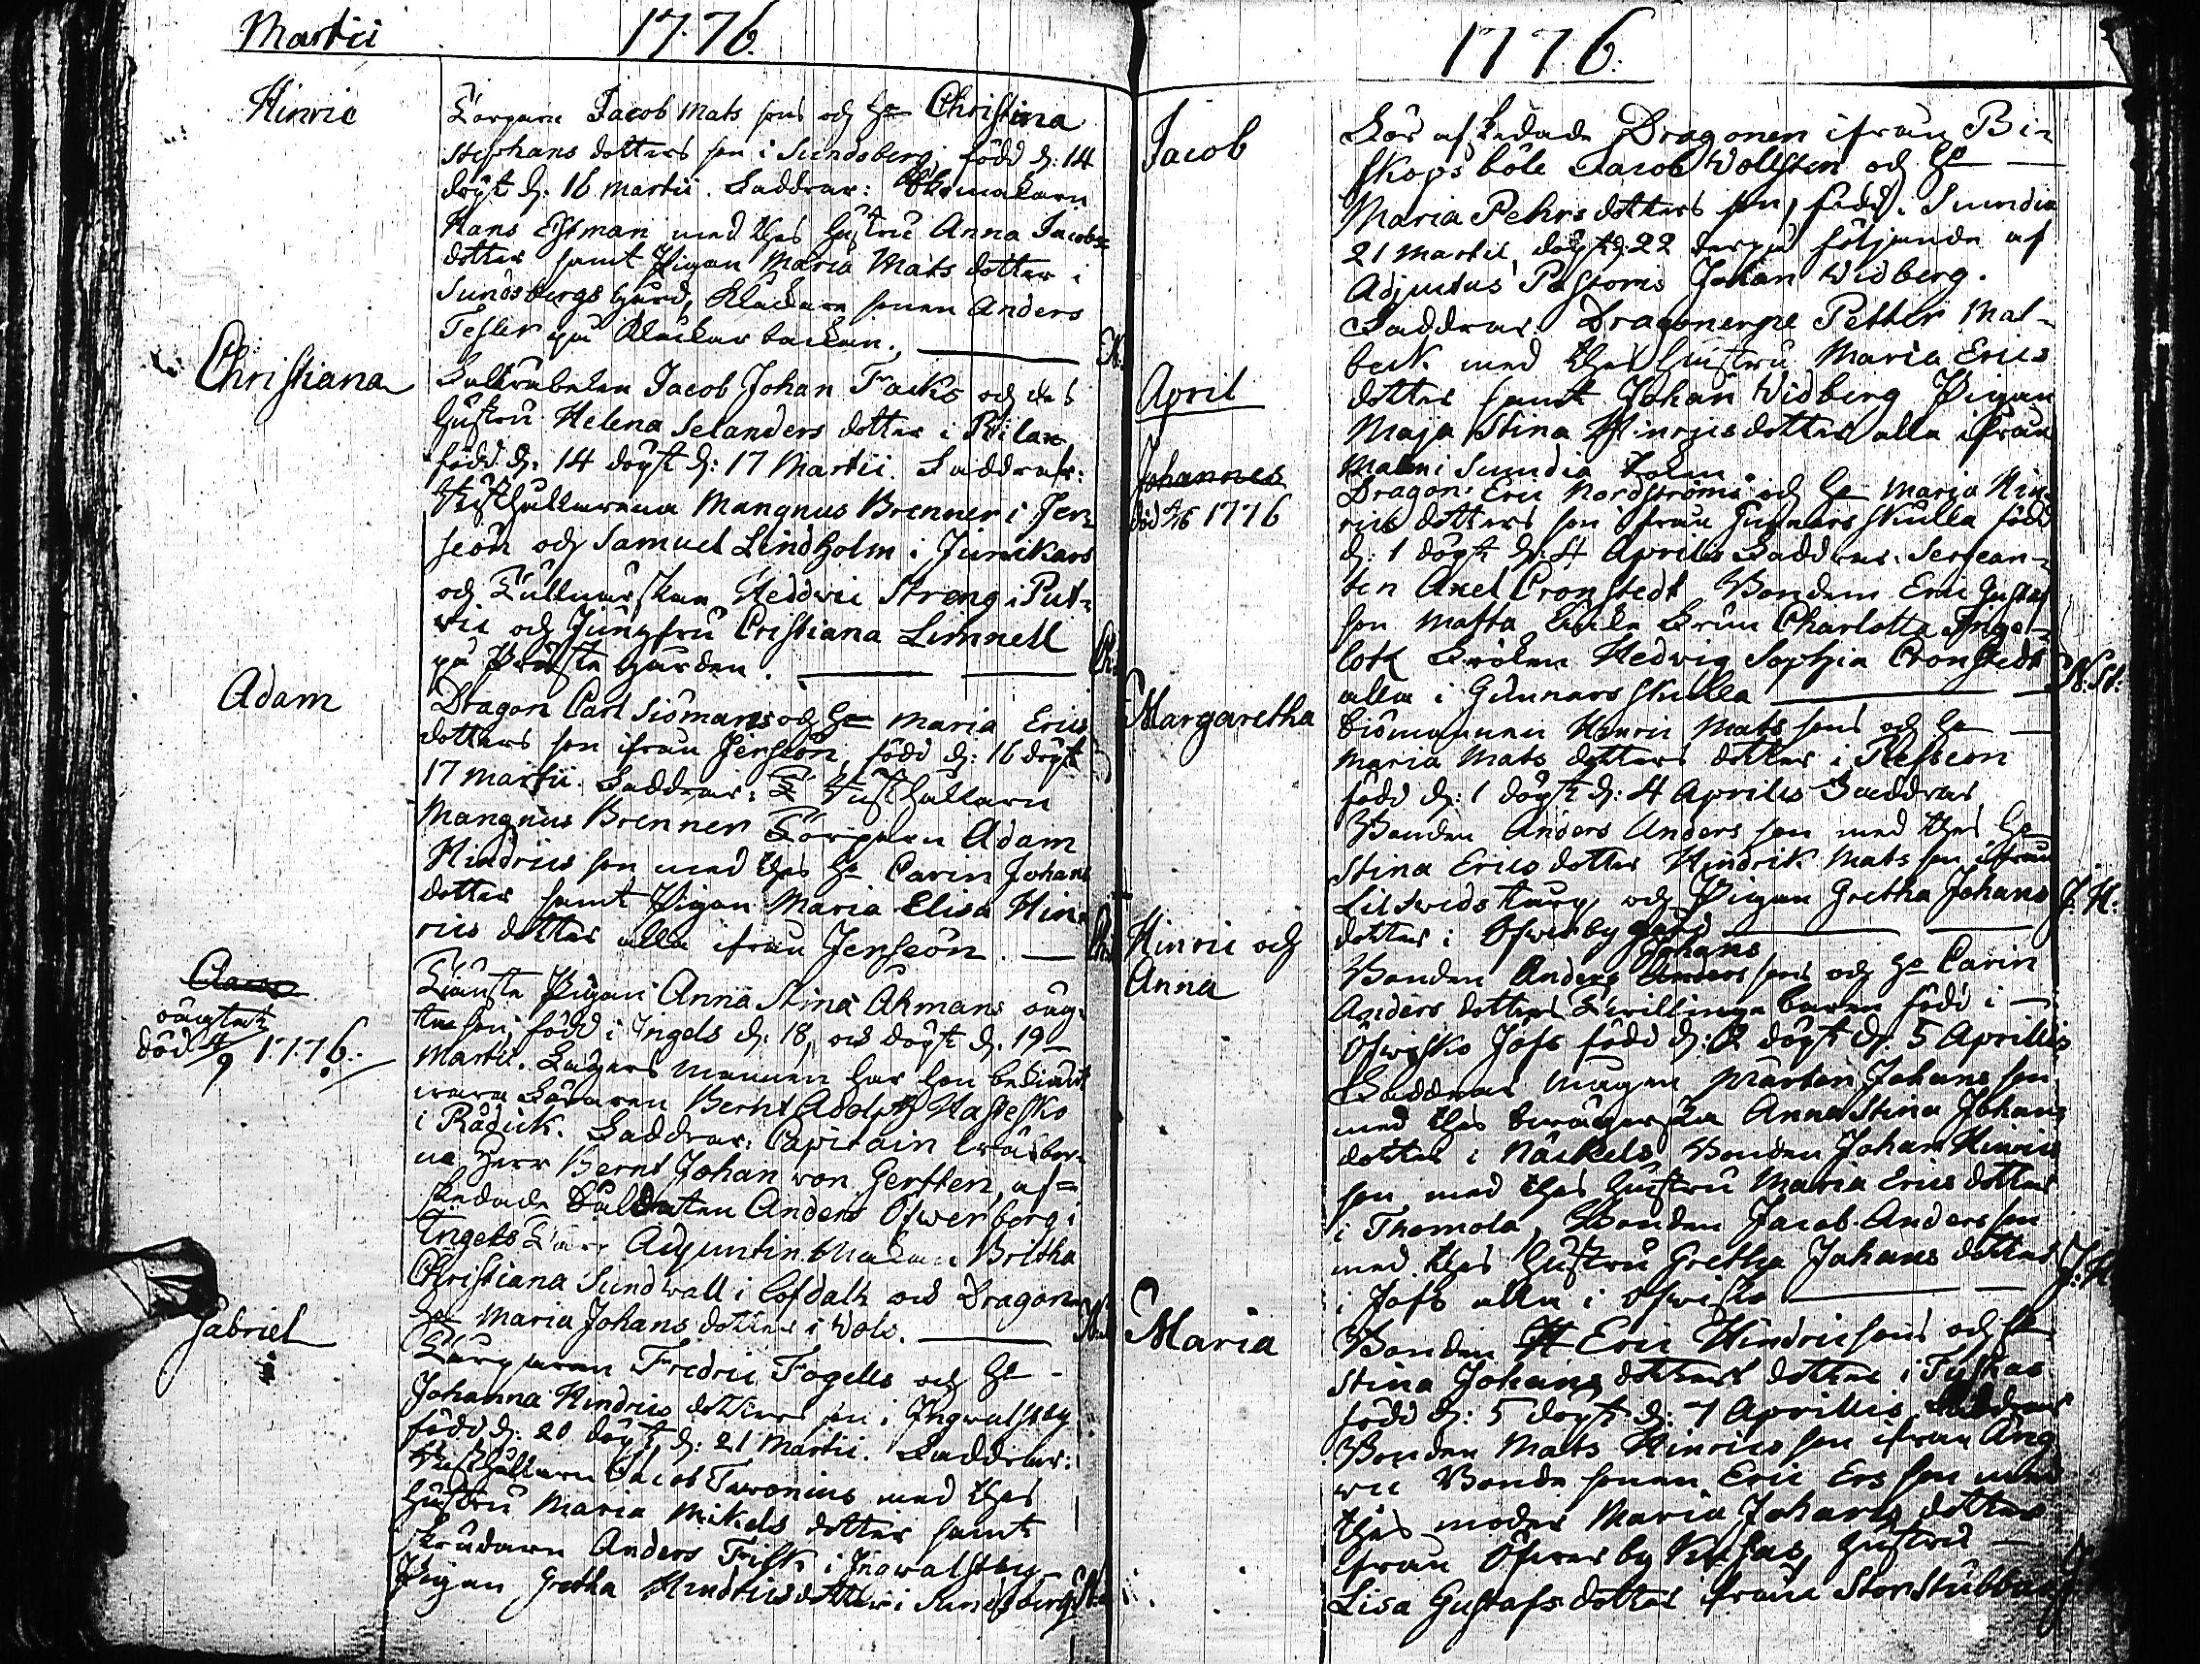 Martii 1776.
Hinric
Torparn Jacob Mats sons och h: Christina
Stephans dotters son i Sundsberg, född d: 14
döpt d: 16 Martii. Faddrar:
Hans Estman med thes hustru Anna Jacobs
dotter samt Pigan Maria Mats dotter i
Sundsbergs gård, Klåckare sonen Anders
Tesler på Klåckar backan.
Christiana
Jacob Johan Facks och des
hustru Helena Selanders dotter i Pilax
född d: 14 döpt d: 17 Martii. Faddrar:
Rusthållarena Mangnus Brenner i Jer=
seön och Samuel Lindholm i Junikars
och Tullnärskan Heddwic Streng i Put=
wic och Jungfru Cristiana Limnell
på Prästegården.
Adam
Dragon Carl Siömans och h: Maria Erics
dotters son ifrån Jerseön, född d: 16 döpt
17 Martii. Faddrar: Rusthållarn
Mangnus Brenner Torparn Adam
Hindrics son med thes h: Carin Johans
dotter samt Pigan Maria Elisa Hin=
rics dotter alla ifrån Jerseön.
oäugta
död 4/9 1776.
Tiänste Pigan Anna Stina Åhmans oäg=
ta son, född i Ingels d: 18, och döpt d. 19
Martii. Lägers mannen har hon bekändt
wara Bernt Adolph Hastesko
i Rådick. Faddrar: Capitain wälbor=
ne Herr Bernt Johan von Gertten, af=
skedade Saldaten Anders Öfwerberg i
Ingels Adjunctin Britha
Christiana Sundwall i Cofdalt och Dragon
h: Maria Johans dotter i Wols.
Gabriel
Torparen Fredric Fogells och h:
Johanna Hindrics dotters son i Ingwalsby
född d: 20 döpt d: 21 Martii. Faddrar:
Rusthållarn Jacob Tawonius med thes
hustru Maria Mikels dotter samt
Anders Frisk i Ingwalsby
Pigan Gretha Hindrics dotter i Sundsberg
1776.
Jacob
För afskedade Dragonen ifrån Bi=
skops böle Jacob Wollsten och h:
Maria Pehrs dotters son, född i Sundia
21 Martii, döpt d: 22 derpå följande af
Adjuctus Pastoris Johan Widberg.
Faddrar: Dragonerne Petter Mal=
beck med thes hustru Maria Erics
dotter samt Johan Widberg Pigan
Maja Stina Hinrics dotter alla ifrån
Malm i Sundia
April
Johannes
död 1776
Dragon: Eric Nordströms och h: Maria Hin=
rics dotters son ifrån Gunnarskulla född
d: 1 döpt d: 4 Aprilis Faddrar. Serjean=
ten Axel Cronstedt Bonden Eric Gustaf
son Matts Charlotta Inge=
lott Fröken Hedwig Sophia Cronstedt
alla i Gunnarskulla
Margaretha
Hinric Mats sons och h:
Maria Mats dotters dotter i Rösseon
född d: 1 döpt d: 4 Aprilis Faddrar
Bonden Anders Anders son med thes h:
Stina Erics dotter Hindrik Mats son ifrån
Lill och Pigan Gretha Johans J. H:
dotter i Öfwerby gård
Hinric och
Anna
Bonden Anders Johans sons och h: Carin
Anders dotters Twillinga barn född i
Öfwitsko Jofs född d: 2 döpt d: 5 Aprillis
Faddrar Mågen Mårten Johans son
med thes Anna Stina Johans
dotter i Näckels Bonden Johan Hinrics
son med thes hustru Maria Erics dotter
i Thomola, Bonden Jacob Anders son
med thes hustru Gretha Johans dotter
i Jofs alla i Öfwitsko
Maria
Bonden Eric Hindricsons och h:
Stina Johans dotters dotter i Tyskas
född d: 5 döpt d: 7 Aprillis Faddrar
Bonden Mats Hinrics son ifrån Äng
wic Bonde sonen Eric Ers son med
thes moder Maria Johans dotter
ifrån Öfwerby hustru
Lisa Gustafs dotter ifrån StorStubbacka